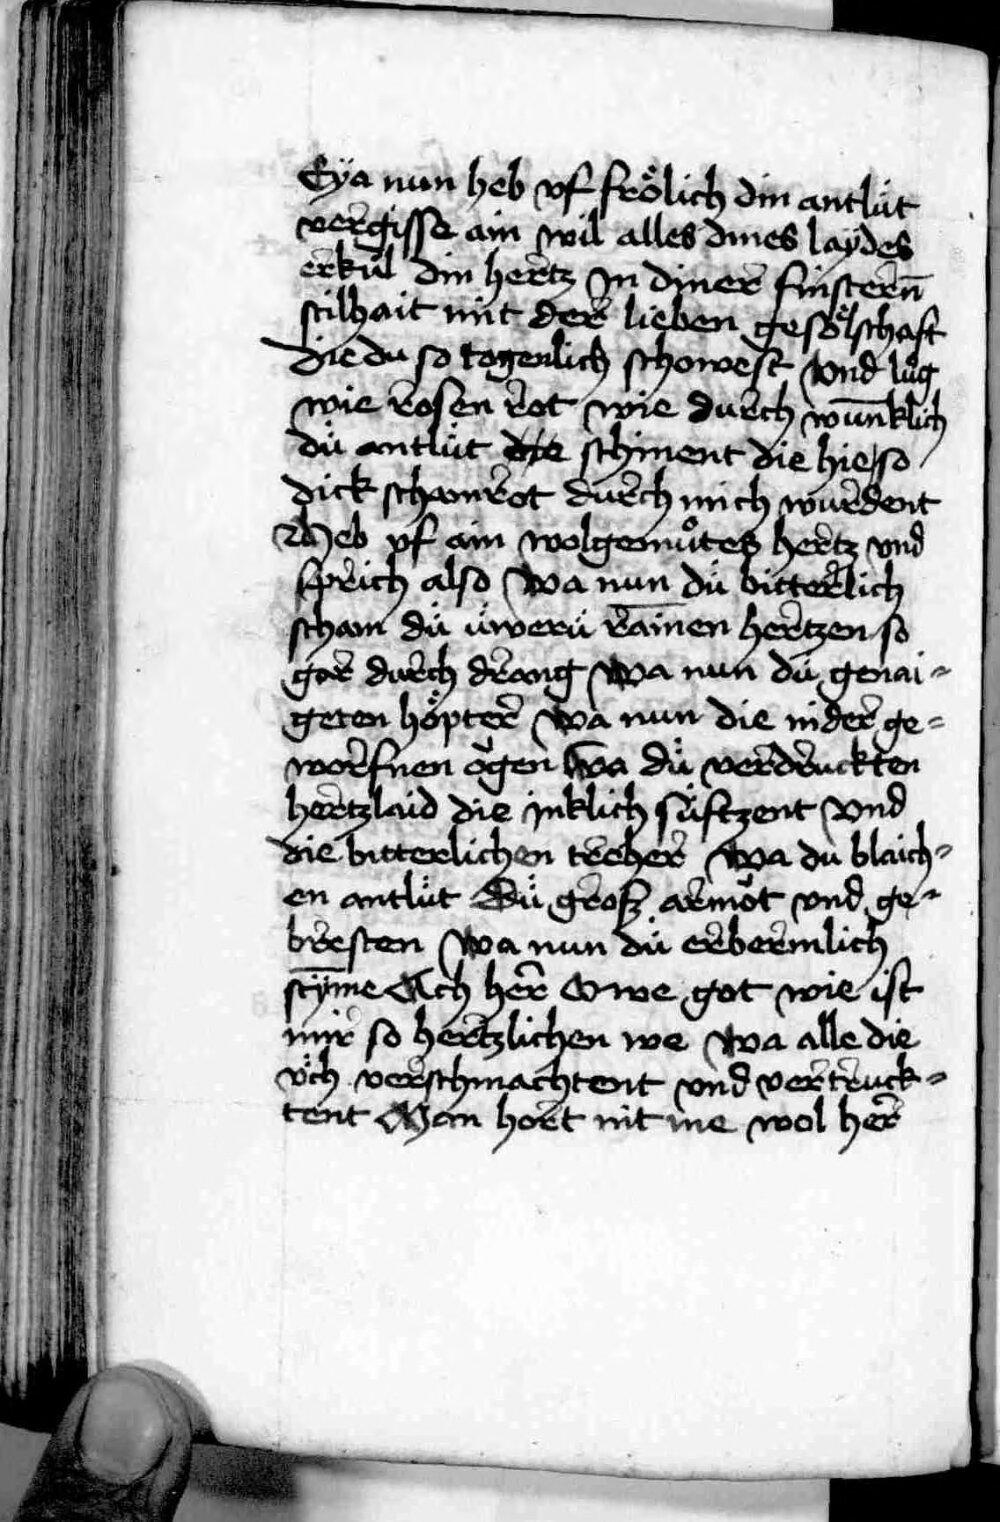 Eÿa nun heb vf froͤlich din antluͤt
vergisse ain wil alles dines laÿdes
erkuͤl din hertz in diner finstern̄
stilhait mit der lieben gesoͤlschaft
die du so togenlich schowest vnd luͦg
wie rosen rot wie durch wun̄klich
duͤ antluͤt die schinent die hie so
dick schamrot durch mich wurdent
Heb vf ain wolgemuͦtes hertz vnd
sprich also wa nun duͤ bitterlich
scham duͤ uͤweruͤ rainen hertzen so
gar durch drang wa nun duͤ genai=
geten hoͤpter wa nun die nider ge=
worfnen oͮgen wa duͤ verdruckten
hertzlaid die inklich suͤftzent vnd
die bitterlichen treher wa du blaich=
en antluͤt Duͤ grosz armoͮt vnd ge=
bresten wa nun duͤ erbermlich
stÿm̄e Ach herr Owe got wie ist
mir so hertzlichen we wa alle die
uͤch verschmachtent vnd vertruck=
tent Man hort nit me wol her